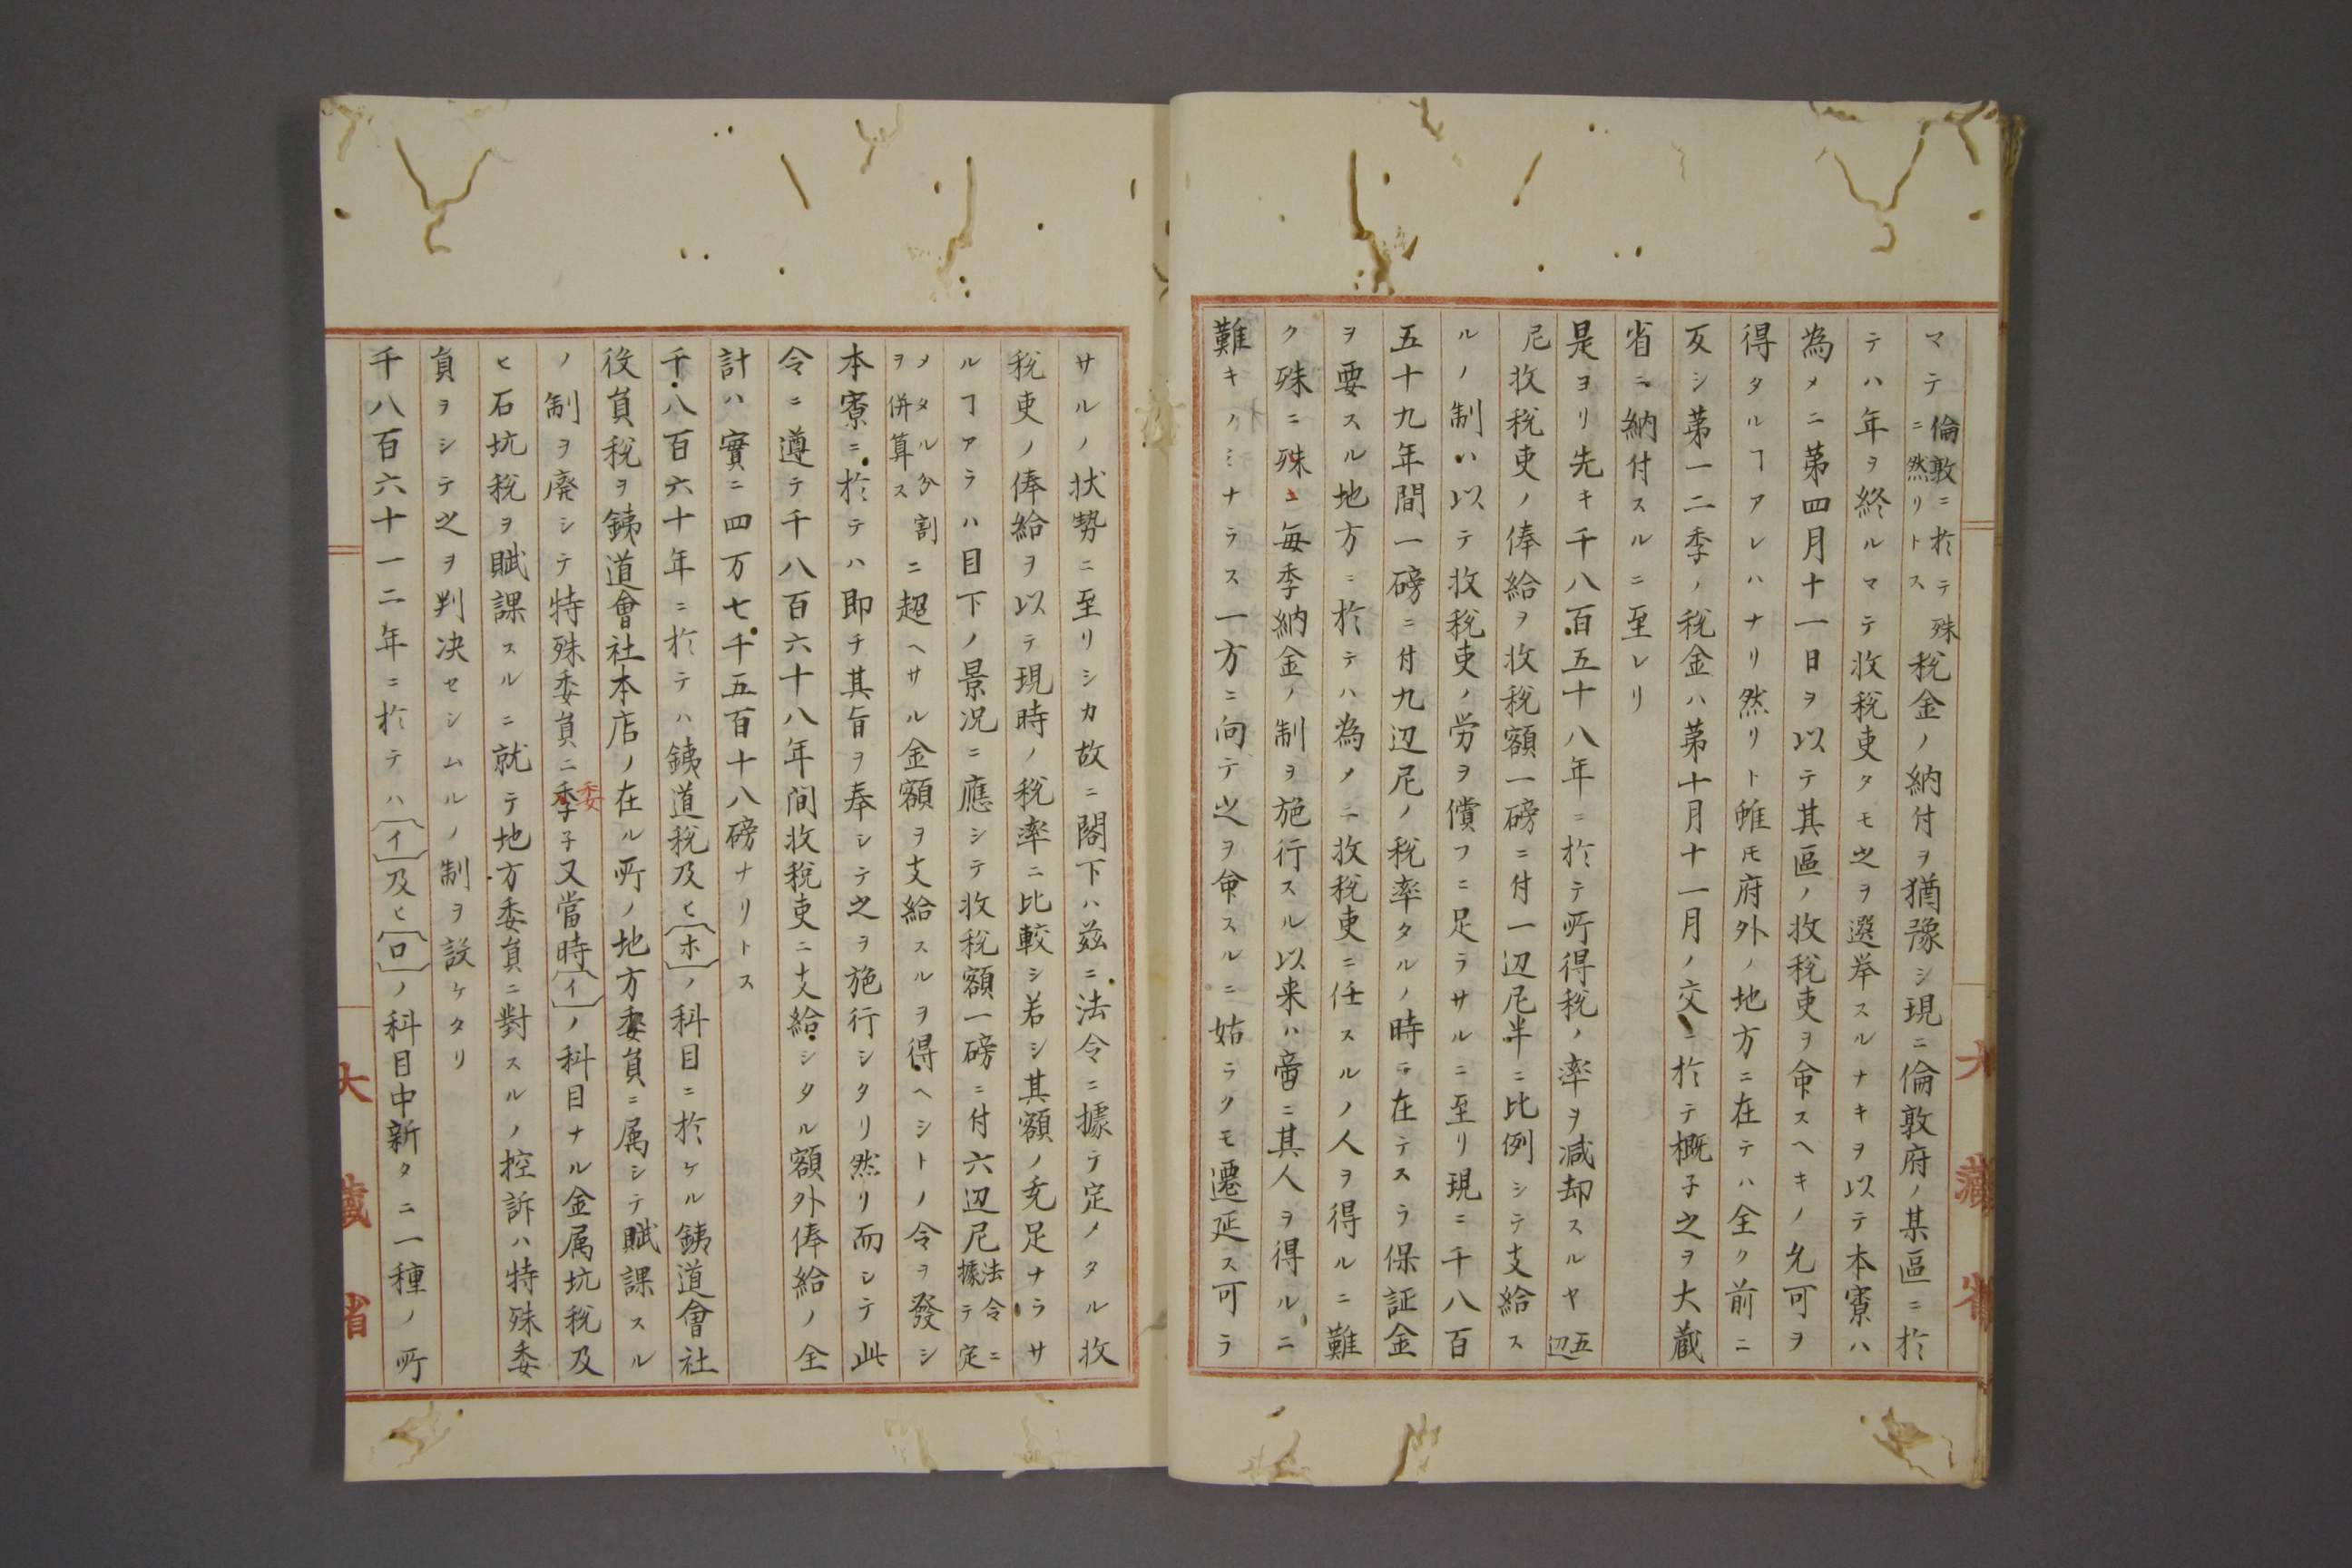 マテ倫敦ニ於テ殊ニ然リトス税金ノ納付ヲ猶豫シ現ニ倫敦府ノ某區ニ於
テハ年ヲ終ルマテ收税吏タモ之ヲ選挙スルナキヲ以テ本寮ハ
為メニ第四月十一日ヲ以テ其區ノ收税吏ヲ命スヘキノ允可ヲ
得タルヿアレハナリ然リト雖モ府外ノ地方ニ在テハ全ク前ニ
反シ第一二季ノ税金ハ第十月十一月ノ交ニ於テ概子之ヲ大蔵
省ニ納付スルニ至レリ
是ヨリ先キ千八百五十八年ニ於テ所得税ノ率ヲ減却スルヤ五辺
尼收税吏ノ俸給ヲ收税額一磅ニ付一辺尼半ニ比例シテ支給ス
ルノ制ハ以テ收税吏ノ労ヲ償フニ足ラサルニ至リ現ニ千八百
五十九年間一磅ニ付九辺尼ノ税率タルノ時ニ在テスラ保証金
ヲ要スル地方ニ於テハ為メニ收税吏ニ任スルノ人ヲ得ルニ難
ク殊ニ殊ニ毎季納金ノ制ヲ施行スル以来ハ啻ニ其人ヲ得ルニ
難キノミナラス一方ニ向テ之ヲ命スルニ姑ラクモ遷延ス可ラ
サルノ状勢ニ至リシカ故ニ閣下ハ茲ニ法令ニ據テ定メタル收
税吏ノ俸給ヲ以テ現時ノ税率ニ比較シ若シ其額ノ充足ナラサ
ルヿアラハ目下ノ景况ニ應シテ收税額一磅ニ付六辺尼法令ニ據テ定
メタル分割ヲ併算スニ超ヘサル金額ヲ支給スルヲ得ヘシトノ令ヲ發シ
本寮ニ於テハ即チ其旨ヲ奉シテ之ヲ施行シタリ然リ而シテ此
令ニ遵テ千八百六十八年间收税吏ニ支給シタル額外俸給ノ全
計ハ實ニ四万七千五百十八磅ナリトス
千八百六十年ニ於テハ銕道税及ヒ〔ホ〕ノ科目ニ於ケル銕道會社
役員税ヲ銕道會社本店ノ在ル所ノ地方委員ニ属シテ賦課スル
ノ制ヲ廃シテ特殊委員ニ季委子又當時〔イ〕ノ科目ナル金属坑税及
ヒ石坑税ヲ賦課スルニ就テ地方委員ニ對スルノ控訴ハ特殊委
員ヲシテ之ヲ判决セシムルノ制ヲ設ケタリ
千八百六十一二年ニ於テハ〔イ〕及ヒ〔ロ〕ノ科目中新タニ一種ノ所
大藏省
大藏省